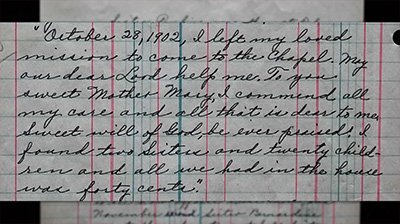 "October 28, 1902, I left my loved
mission to come to the Chapel. May
our dear Lord help me. To you
sweet Mother Mary, I commend all
my care and all that is dear to me.
Sweet will of God, be ever praised; I
found two Sisters and twenty child-
ren and all we had in the house
was forty cents."
November Sister Bernardine